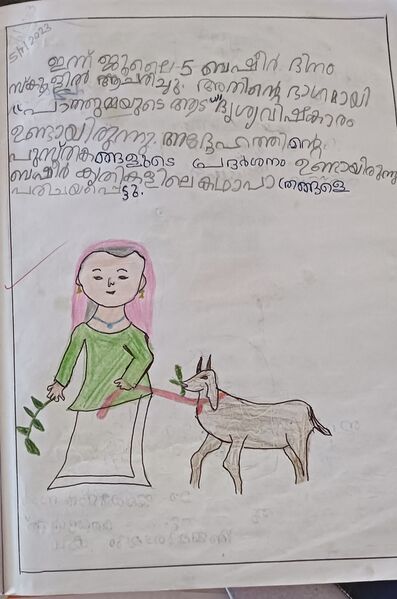 5/7/2023
ഇന്ന് ജൂലൈ-5 ബഷീർ ദിനം
സ്കൂളിൽ ആചരിച്ചു. അതിന്റെ ഭാഗമായി
പാത്തുമ്മയുടെ ആട് ദൃശ്യവിഷ്കാരം
ഉണ്ടായിരുന്നു. അദ്ദേഹത്തിന്റെ
പുസ്തകങ്ങളുടെ പ്രദർശനം ഉണ്ടായിരുന്നു
ബഷീർ കൃതികളിലെ കഥാപാത്രങ്ങളെ
പരിചയപ്പെട്ടു.